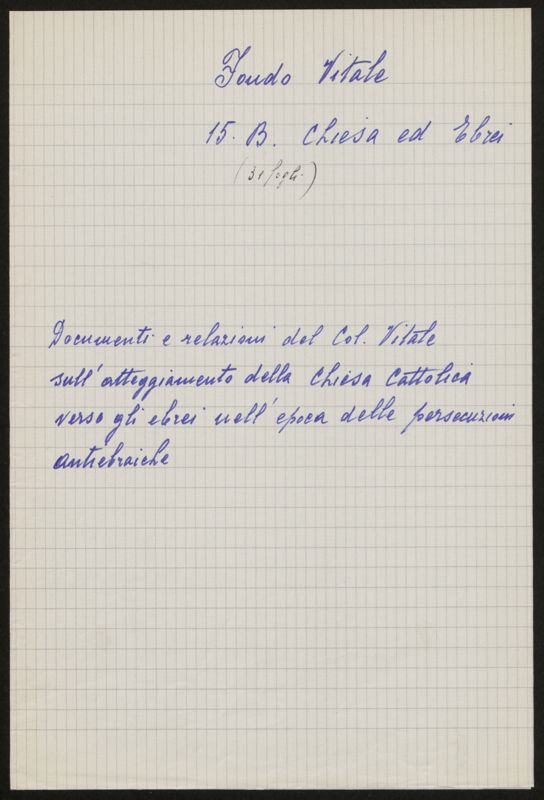 Fondo Vitale
15. B. Chiesa ed Ebrei
(31 fogli)
Documenti e relazioni del Col. Vitale
sull'atteggiamento della Chiesa Cattolica
verso gli ebrei nell'epoca delle persecuzioni
antiebraiche